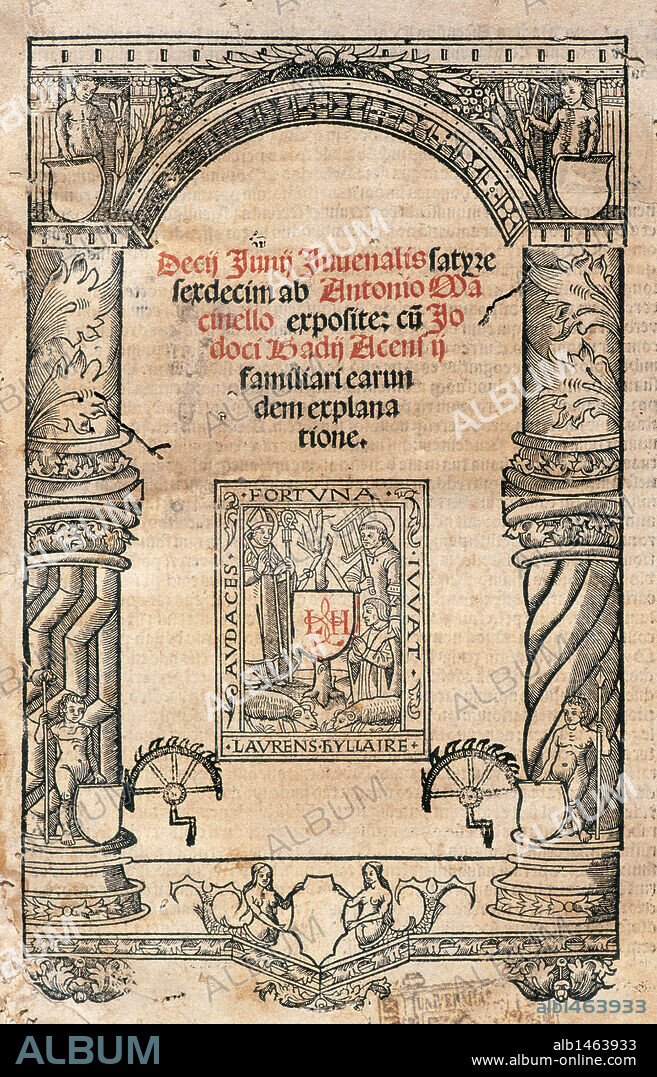 Decij Junij Juuenalis satyre
sexdecim ab Antonio Ma
cinello exposite: cũ Jo
doci Badij Acensij
familiari earun
dem explana
tione.
·FORTVNA·
AVDACES·
·IVVAT·
LH
·LAVRENS·HYLLAIRE·
UNIVERSITA
ALBUM
alb1463933
ALBUM
alb1463933
www.album-online.com